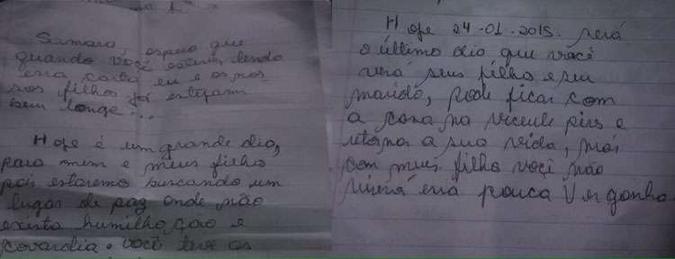 Samara, espero que
quando você estiver lendo
essa carta eu e os nos
sos filhos já estejam
bem longe...
Hoje é um grande dia,
para mim e meus filho
pois estaremo buscando um
lugar de paz onde não
exista humilhação e
covardia. você teve as
Hoje 24-01-2015. será
o último dia que você
verá seus filho e seu
marido, pode ficar com
a casa na
a sua vida, mas
com meus filho você não
viverá essa pouca Vergonha